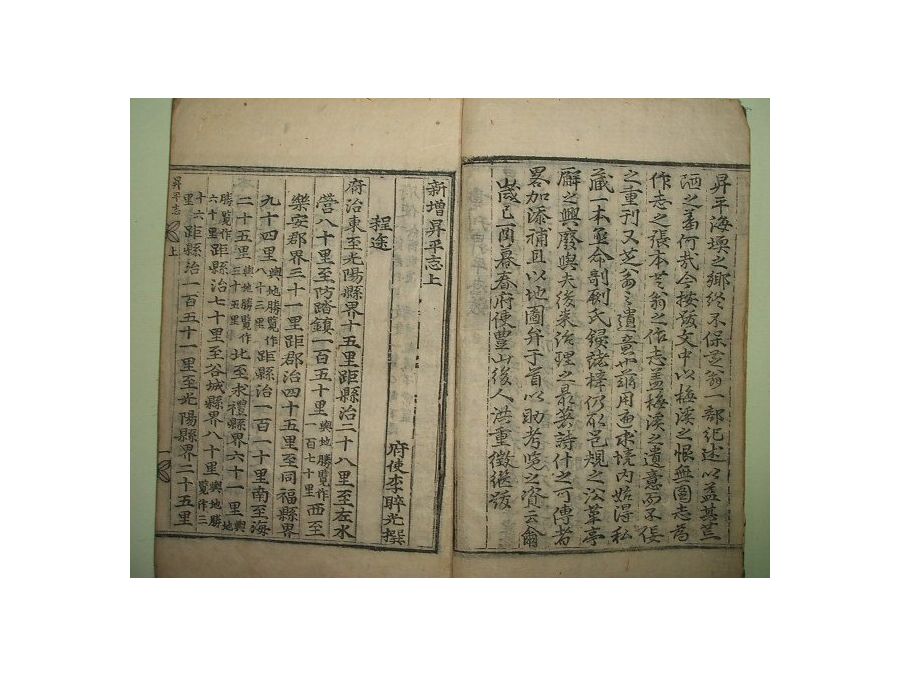 昇平海堧之鄉終不保芝翁一部紀述以益其荒
陋之羞何哉今按跋文中以梅溪之恨無圖志爲
作志之張本芝翁之作志盖梅溪之遺意而不佞
之重刊又芝翁之遺意也用遍求境內始得私
藏一本亟命剞劂氏鋟諸梓仍取邑規之沿革亭
廨之興廢與夫後來治理之最著詩什之可傳者
畧加添補且以地圖弁于首以助考覽之資云爾
歲己酉暮春府使豊山後人洪重徵繼跋
新增昇平志上
府使李睟光撰
程途
府治東至光陽縣界十五里距縣治二十八里至左水
營八十里至防踏鎭一百五十里輿地勝覽作一百七十里西至
樂安郡界三十一里距郡治四十五里至同福縣界
九十四里輿地勝覽作八十三里距縣治一百一十里南至海
二十五里輿地勝覽作三十五里北至求禮縣界六十一里輿地
勝覽作六十里距縣治七十里至谷城縣界八十里輿地勝覽作三
十六里距縣治一百五十一里至光陽縣界二十五里
昇平志
上